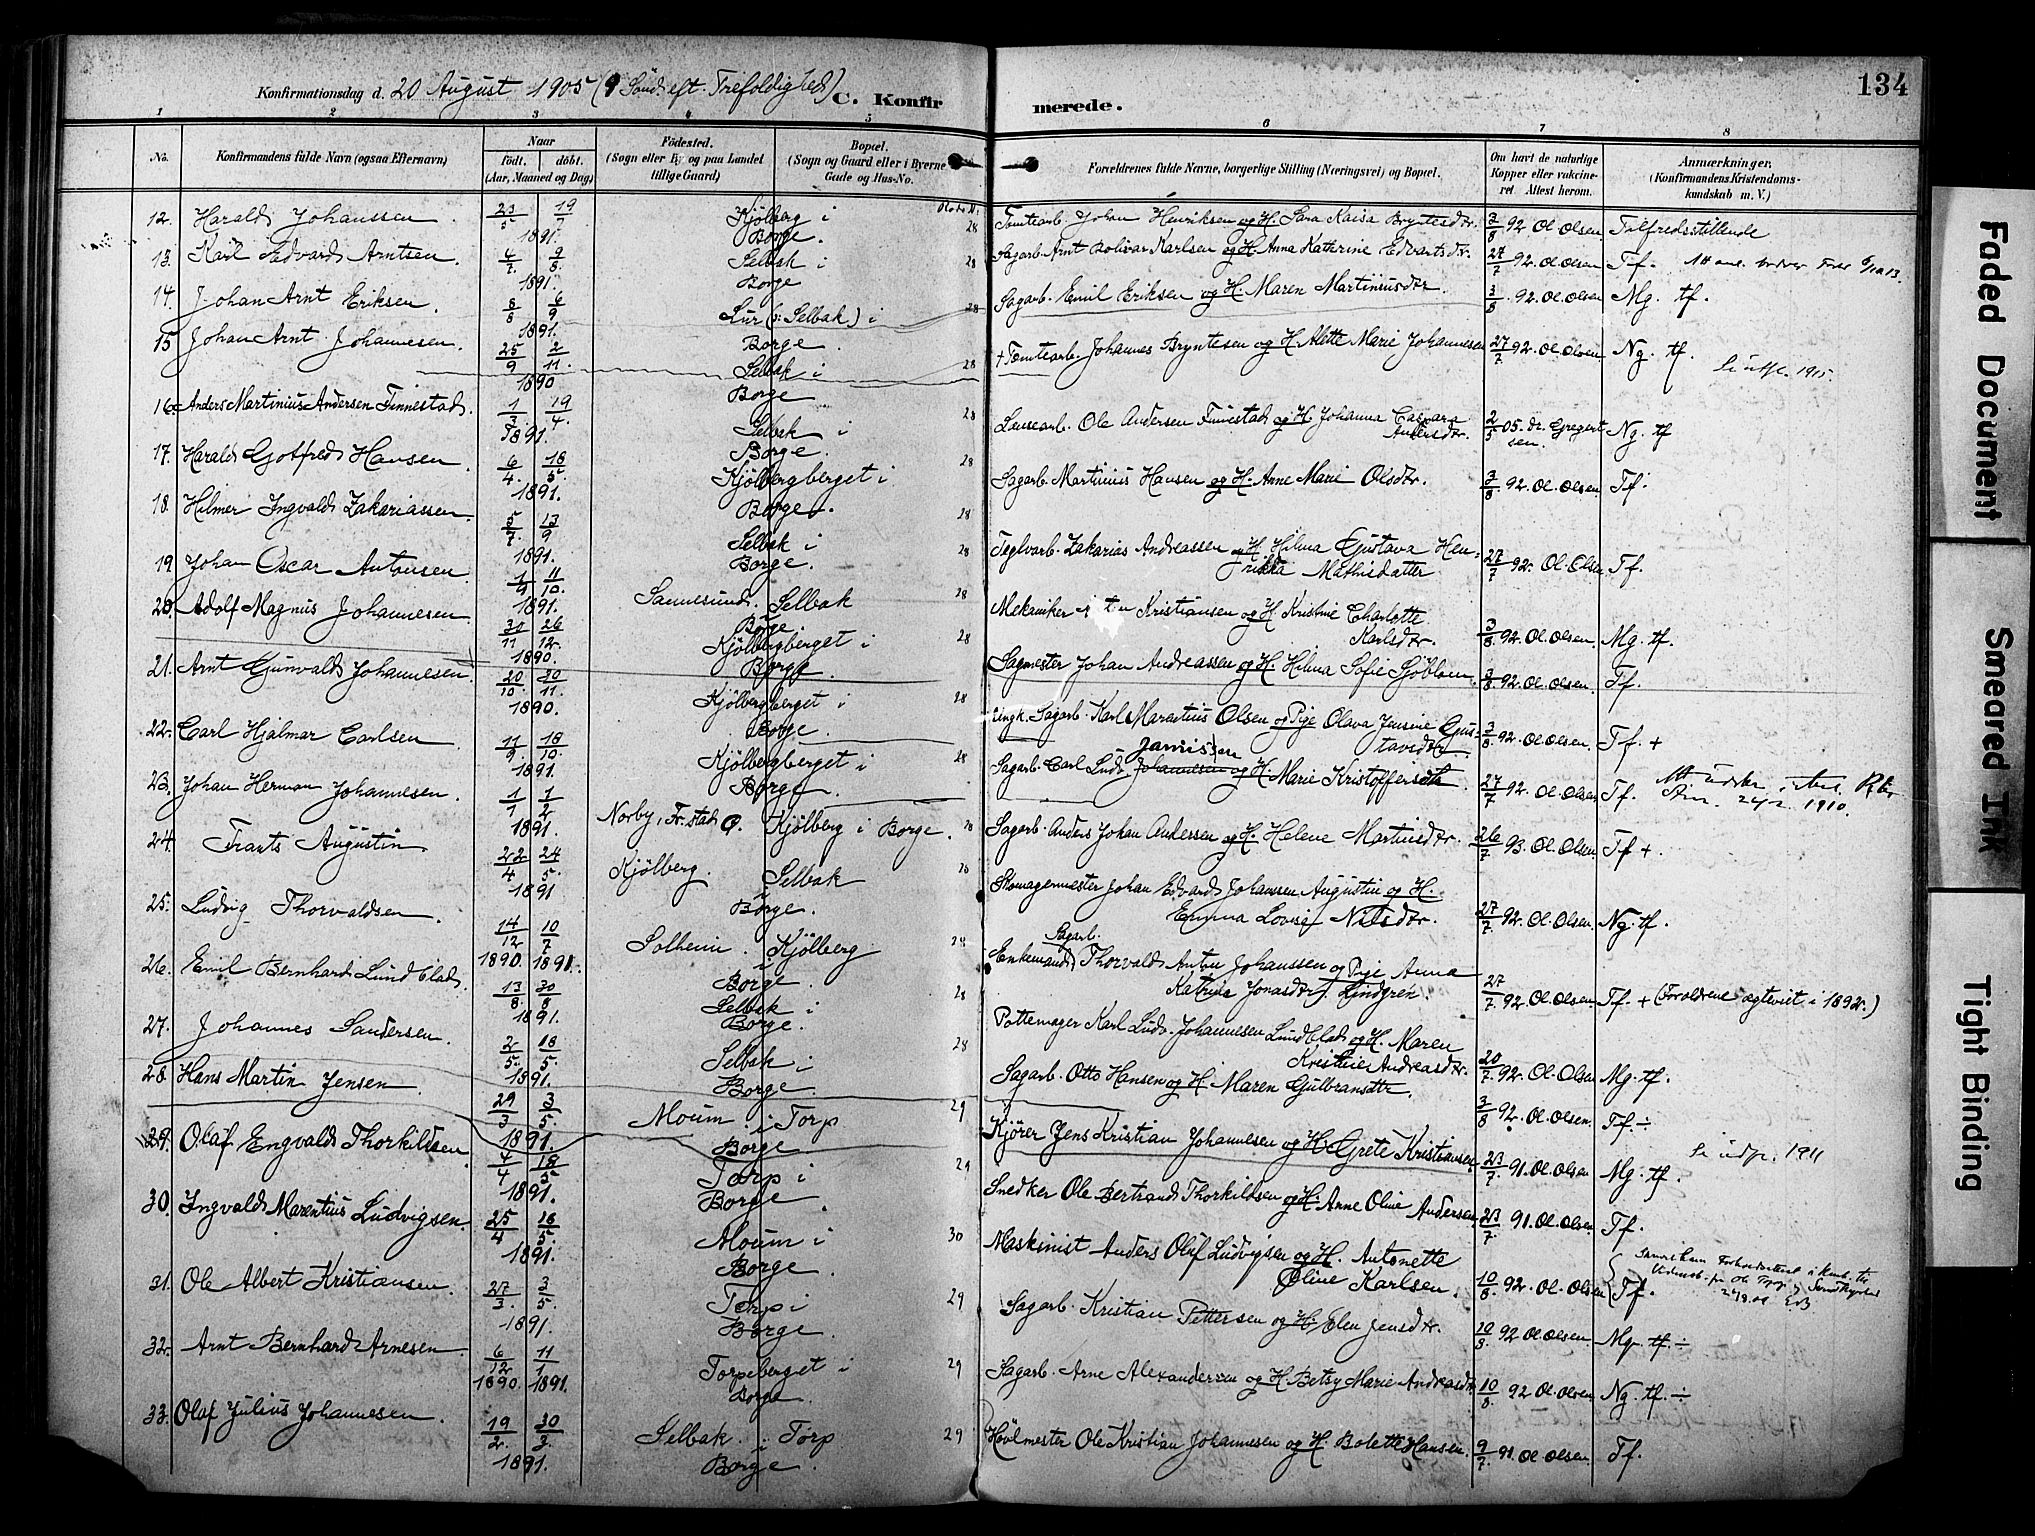 134
Konfirmationsdag d. 20 August 1905 (9 Sönd. eft. Trefoldighed) C. Konfirmerede.
1 2 3 4 5 6 7 8
No. Konfirmandens fulde Navn (ogsaa Efternavn) Naar födt. döbt. (Aar, Maaned og Dag) Födested. (Sogn eller By og paa Landet tillige Gaard) Bopæl. (Sogn og Gaard eller i Byerne Gade og Hus-No. Forældrenes fulde Navne, borgerlige Stilling (Næringsvei) og Bopæl. Om havt de naturlige Kopper eller vaccineret Attest herom. Anmærkninger, (Konfirmandens Kristendomskundskab m. V.)
12. Harald Johanssen 23/5 19/7 1891. Kjölberg i Borge. 28 Tomtearb. Johan Henriksen og H. Sara Kaisa Bryntesdtr. 3/8 92 Ol. Olsen. Tilfredsstillende
13. Karl Edvard Arntsen. 4/7. 9/8. 1891. Selbak i Borge 28 Sagarb. Arnt Bolivar Karlsen og H. Anna Katerine Edvartsdtr. 27/7 92. Ol. Olsen Tf.
14. Johan Arnt Eriksen. 8/8 6/9 1891. Lur (o: Selbak) i Borge. 28 Sagarb. Emil Eriksen og H. Maren Martiniusdtr. 3/8. 92. Ol. Olsen Mg. tf.
15. Johan Arnt Johannesen. 25/9 2/11. 1890 Selbak i Borge 28 + Tomtearb. Johannes Bryntesen og H. Alette Marie Johannesen 27/7 92. Ol. Olsen Ng. tf. 1915.
16. Anders Martinius Andersen Finnestad. 1/3. 19/4. 1891. Selbak i Borge. 28 Lensearb. Ole Andersen Finnestad og H. Johanna Caspara Andersdtr. 2/5 05. Dr. Gregertsen. Ng. tf
17. Harald Gotfred Hansen. 6/4. 18/5. 1891. Kjölbergberget i Borge. 28 Sagarb. Martinius Hansen og H. Anne Marie Olsdtr. 3/8 92. Ol. Olsen Tf.
18. Hilmer Ingvald Zakariassen. 5/7. 13/9 1891. Selbak i Borge. 28 Teglvarb. Zakarias Andreassen og H. Hilma Gustava Henrikka Mathisdatter 27/7 92. Ol. Olsen Tf.
19. Johan Oscar Antonsen. 1/4 11/10. 1891. Sannesund. Selbak Borge. 28 Mekaniker Kristiansen og H. Kristine Charlotte Karlsdtr. 3/8 92. Ol. Olsen. Mg. tf.
20. Adolf Magnus Johannesen 30/11 26/12. 1890. Kjölbergberget i Borge. 28 Sagmester Johan Andreassen og H. Hilma Sofie Sjöblom. 3/8 92. Ol. Olsen. Tf.
21. Arnt Gunvald Johannesen 20/10. 30/11. 1890. Kjölbergberget i Borge. 28 Ungk. Sagarb. Karl Marentius Olsen og Pige Olava Jensine Gustavsdtr. 3/8 92. Ol. Olsen. Tf. +
22. Carl Hjalmar Carlsen 11/9. 18/10. 1891. Kjölbergberget i Borge. 28 Sagarb. Carl Ludv. Johannesen og H. Marie Kristoffersdtr 27/7 92. Ol. Olsen Tf. 1910.
23. Johan Herman Johannesen. 1/1 1/2 1891. Norby, Fr.stad O. Kjölberg i Borge. 28 Sagarb. Anders Johan Andersen og H. Helene Martinsdtr. 26/7 93. Ol. Olsen. Tf +.
24. Frants Augustin 22/4 24/5. 1891 Kjölberg. Selbak i Borge. 28 Skomagermester Johan Edvard Johanssen Augustin og H. Emma Lovise Nilsdtr. 27/7 92. Ol. Olsen. Ng. tf.
25. Ludvig Thorvaldsen. 14/12 1890. 10/7 1891. Solheim. Kjölberg i Borge. 28 Enkemand Sagarb. Thorvald Anton Johanssen og Pige Anna Katrine Jonasdtr. Lindgren. 27/7 92. Ol. Olsen Tf. + (Forældrene ægteviet i 1892.)
26. Emil Bernhard Lundblad. 13/8. 30/8 1891. Selbak i Borge. 28 Pottemager Karl Ludv. Johannesen Lundblad og H. Maren Kristine Andreasdtr. 20/7 92. Ol. Olsen Mg. tf.
27. Johannes Sandersen. 2/5. 18/5. 1891. Selbak i Borge. 28 Sagarb. Otto Hansen og H. Maren Gulbransdtr. 3/8 92. Ol. Olsen. Tf. ÷
28. Hans Martin Jensen 29/3 3/5. 1891. Moum. i Torp Borge 29 Kjörer Jens Kristian Johannesen og H. Grete Kristiansen 23/7 91. Ol. Olsen Mg. tf. 1911
29. Olaf Engvald Thorkildsen 4/4 18/5 1891. Torp i Borge 29 Snedker Ole Bertrand Thorkildsen og H. Anne Oline Andersen 23/7. 91. Ol. Olsen Tf.
30. Ingvald Marentius Ludvigsen 25/4 18/5. 1891. Moum i Borge. 30 Maskinist Anders Olaf Ludvigsen og H. Antonette Oline Karlsen. 10/8. 92. Ol. Olsen Tf.
31. Ole Albert Kristiansen. 27/3. 3/5. 1891. Torp i Borge. 29 Sagarb. Kristian Pettersen og H. Elen Jensdtr. 10/8. 92 Ol. Olsen. Mg. tf. ÷
32. Arnt Bernhard Arnesen. 6/12 1890. 11/1 1891. Torpeberget i Borge. 29 Sagarb. Arne Alexandersen og H. Betsy Marie Andreasdtr 10/8. 92 Ol. Olsen Ng. tf. ÷
33. Olaf Julius Johannesen. 19/2. 30/3. 1891. Selbak. i Torp Borge. 29 Hövlmester Ole Kristian Johannesen og H. Bolette Hansen. 9/7 91. Ol. Olsen. Tf.
Faded Document
Smeared Ink
Tight Binding